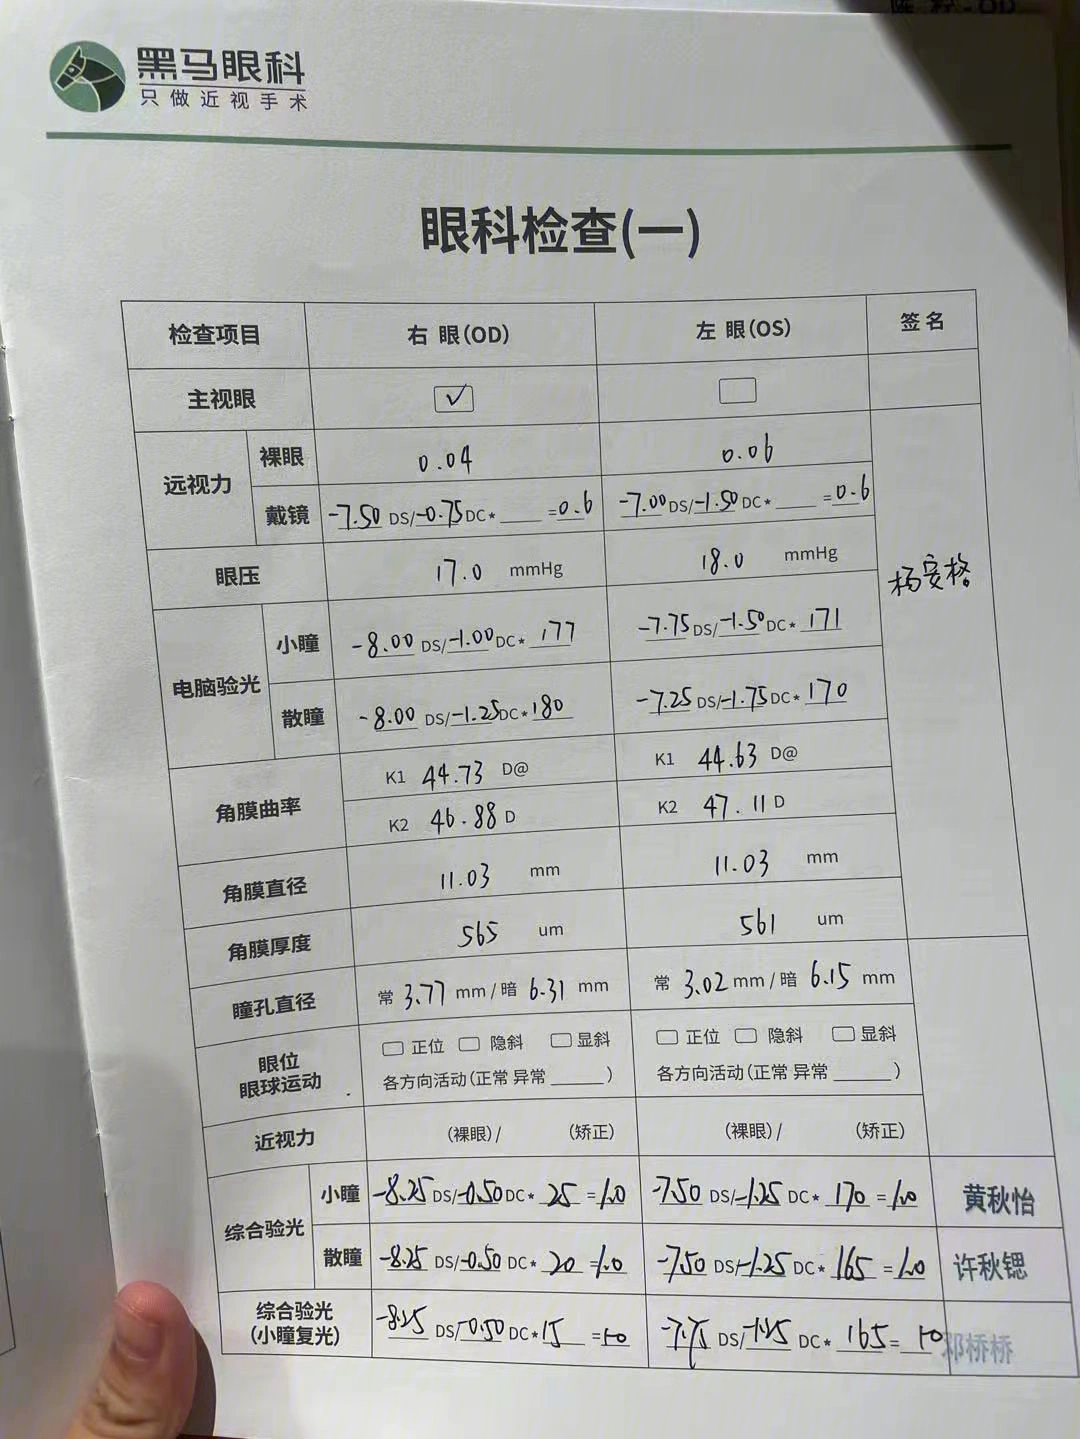 黑马眼科
只做近视手术
眼科检查(一)
检查项目 右 眼(OD) 左 眼(OS) 签 名
主视眼 ✓
远视力 裸眼 0.04 0.06
戴镜 -7.50 DS/-0.75DC* =0.6 -7.00DS/-1.50DC* =0.6
眼压 17.0 mmHg 18.0 mmHg
杨安格
电脑验光 小瞳 -8.00 DS/-1.00DC* 177 -7.75DS/-1.50DC* 171
散瞳 -8.00 DS/-1.25DC*180 -7.25DS/-1.75DC*170
角膜曲率 K1 44.73 D@ K1 44.63 D@
K2 46.88 D K2 47.11 D
角膜直径 11.03 mm 11.03 mm
角膜厚度 565 um 561 um
瞳孔直径 常 3.77 mm/暗 6.31 mm 常 3.02 mm/暗 6.15 mm
眼位 正位 隐斜 显斜 正位 隐斜 显斜
眼球运动 各方向活动(正常 异常 ) 各方向活动(正常 异常 )
近视力 (裸眼)/ (矫正) (裸眼)/ (矫正)
综合验光 小瞳 -8.25DS/-0.50DC* 25 =1.0 -7.50 DS/-1.25 DC* 170 =1.0 黄秋怡
散瞳 -8.25 DS/-0.50 DC* 20 =1.0 -7.50 DS/-1.25 DC* 165 =1.0 许秋锶
综合验光
(小瞳复光) -8.25 DS/-0.50 DC*15 =1.0 DS/-1.25 DC* 165= 1.0 邓桥桥